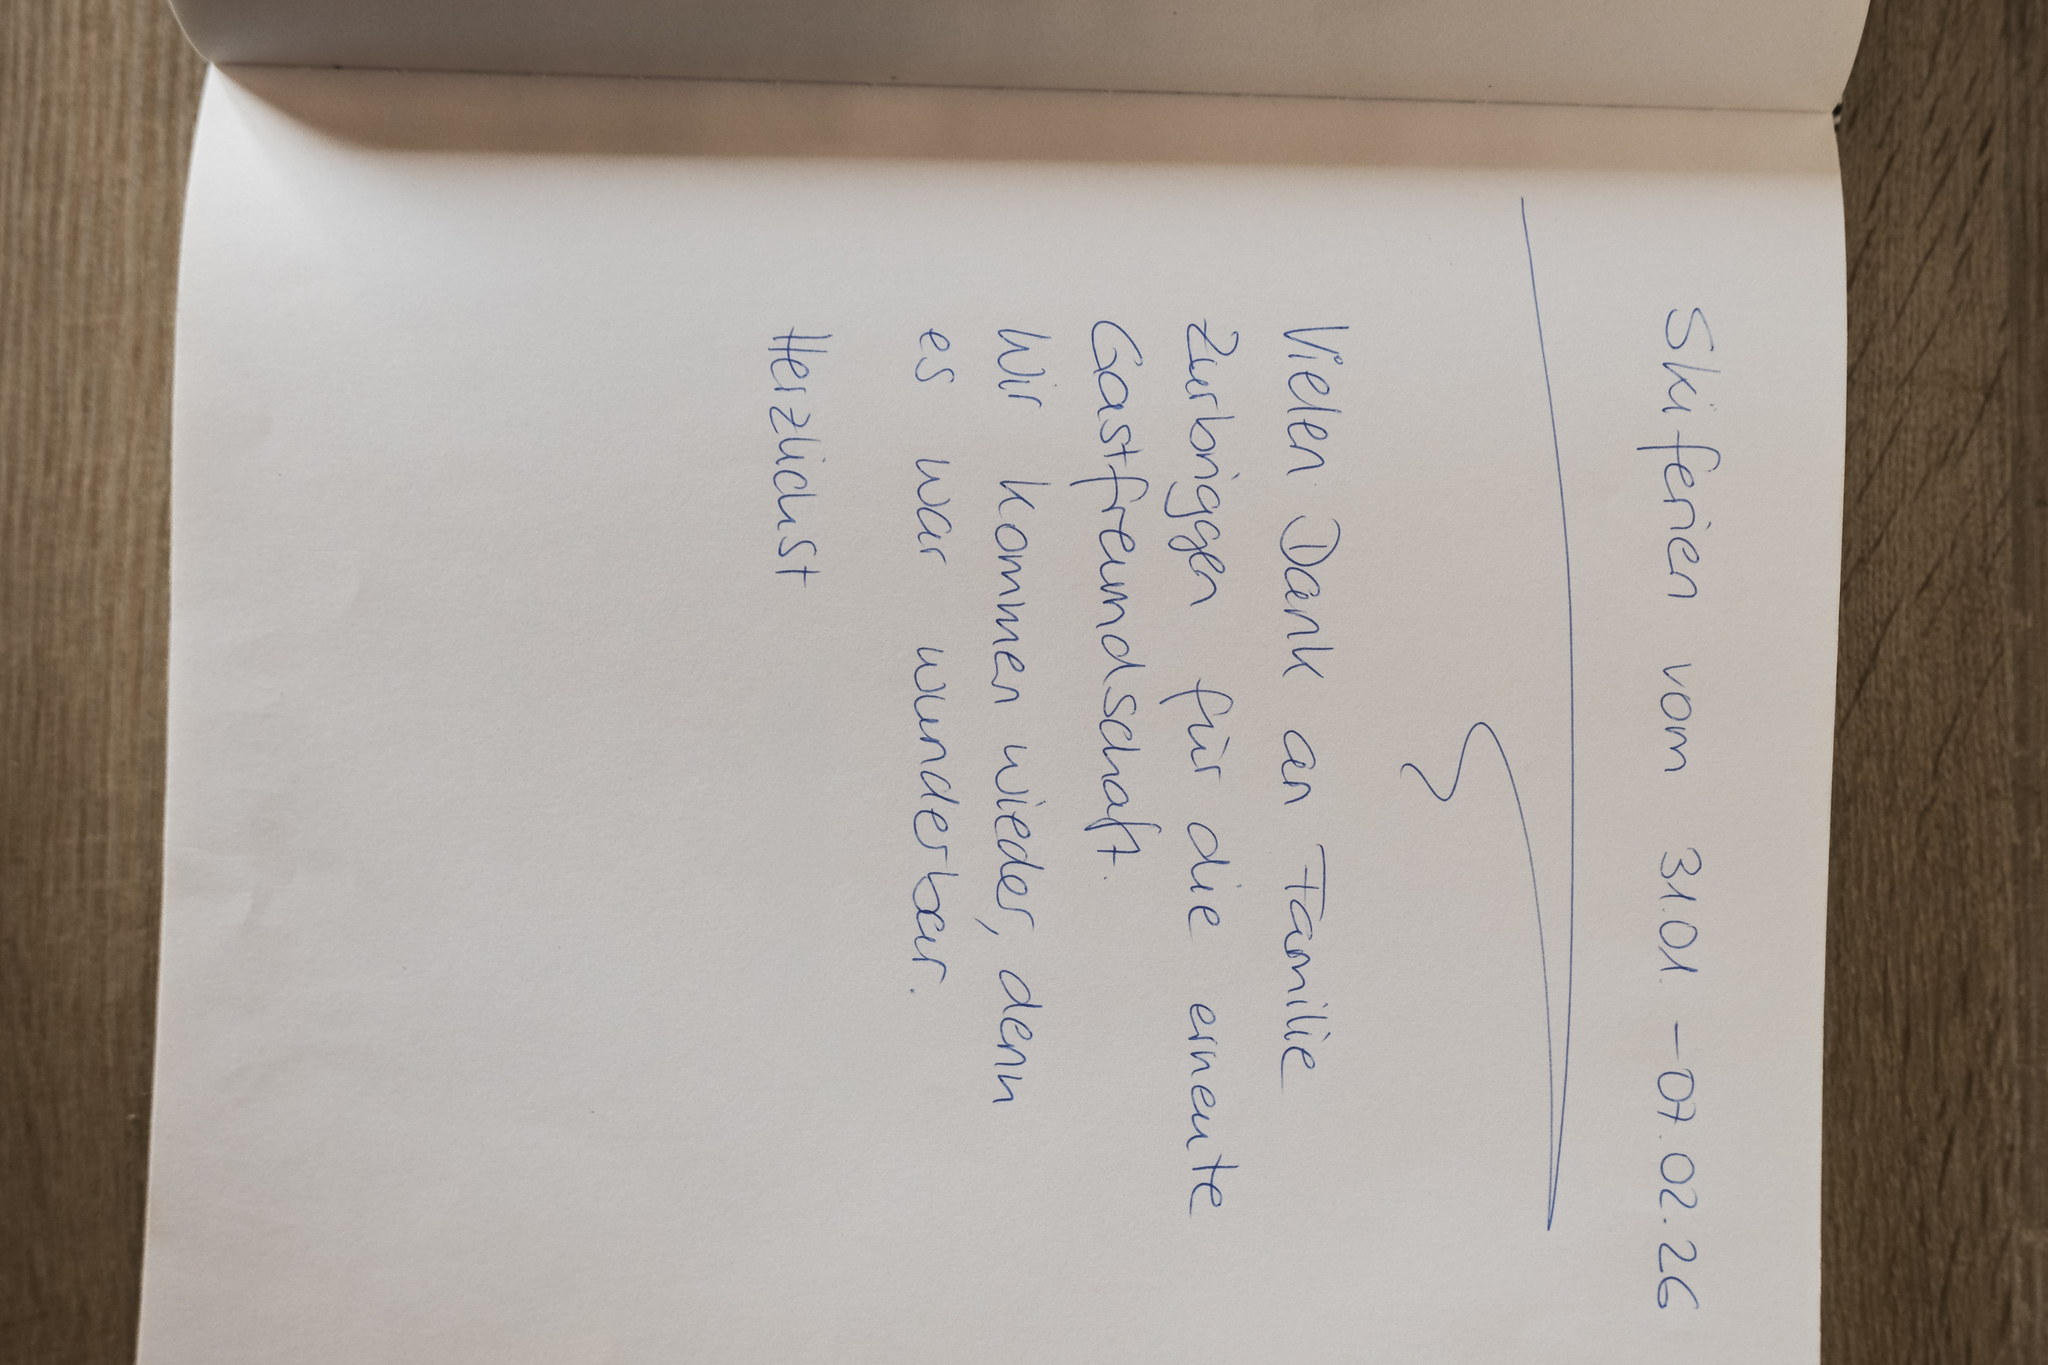 Skiferien vom 31.01. – 07.02.26
Vielen Dank an Familie
Zurbriggen für die erneute
Gastfreundschaft.
Wir kommen wieder, denn
es war wunderbar.
Herzlichst